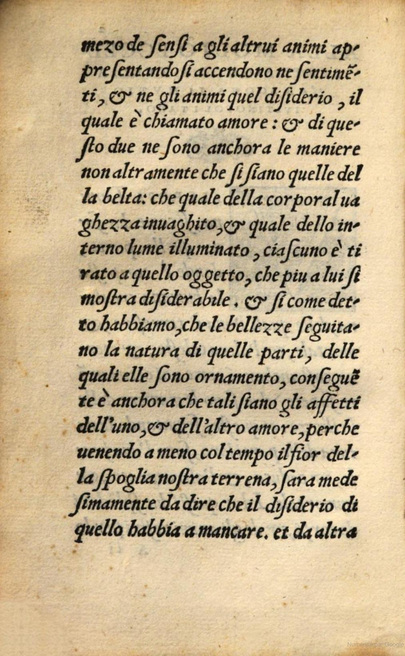 mezo de ſenſi a gli altrui animi ap-
preſentandoſi accendono ne ſentimē-
ti, & ne gli animi quel diſiderio, il
quale è chiamato amore: & di que-
ſto due ne ſono anchora le maniere
non altramente che ſi ſiano quelle del
la belta: che quale della corporal ua
ghezza inuaghito, & quale dello in-
terno lume illuminato, ciaſcuno è ti
rato a quello oggetto, che piu a lui ſi
moſtra diſiderabile. & ſi come det-
to habbiamo, che le bellezze ſeguita-
no la natura di quelle parti, delle
quali elle ſono ornamento, conſeguē
te è anchora che tali ſiano gli affetti
dell'uno, & dell'altro amore, perche
uenendo a meno col tempo il fior del-
la ſpoglia noſtra terrena, ſara mede
ſimamente da dire che il diſiderio di
quello habbia a mancare. et da altra